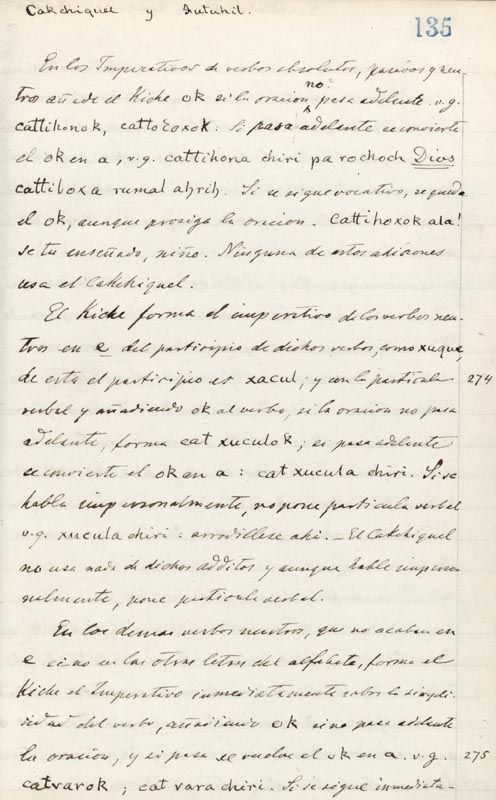 Cakchiquel y Zutuhil.
135
En los Imperativos de verbos absolutos, pasivos y neu-
tros añade el Kiche ok si la oracion no pasa adelante. v.g.
cattihonok, cattohoxok: Si pasa adelante se convierte
el ok en a, v.g. cattihona chiri pa rochoch Dios
cattiloxa rumal ahrih. Si se sigue vocativo, se queda
el ok, aunque prosiga la oracion. Cattihoxok ala!
se tu enseñado, niño. Ninguna de estas adiciones
usa el Cakchiquel.
El Kiche forma el imperativo de los verbos neu-
tros en e del participio de dichos verbos, como xuque,
de esta el participio es xacul; y con la particula 274
verbal y añadiendo ok al verbo, si la oracion no pasa
adelante, forma cat xuculok; si pasa adelante
se convierte el ok en a: cat xucula chiri. Si se
habla impersonalmente, no pone particula verbal
v.g. xucula chiri: arrodillese ahi. — El Cakchiquel
no usa nada de dichos additos y aunque hable imperso
nalmente, pone particula verbal.
En los demas verbos neutros, que no acaban en
e si no en las otras letras del alfabeto, forma el
Kiche el Imperativo inmediatamente sobre la simpli-
cidad del verbo, añadiendo ok si no pasa adelante
la oracion, y si pasa se vuelve el ok en a. v.g. 275
catvarok; cat vara chiri. Si se sigue inmediata-